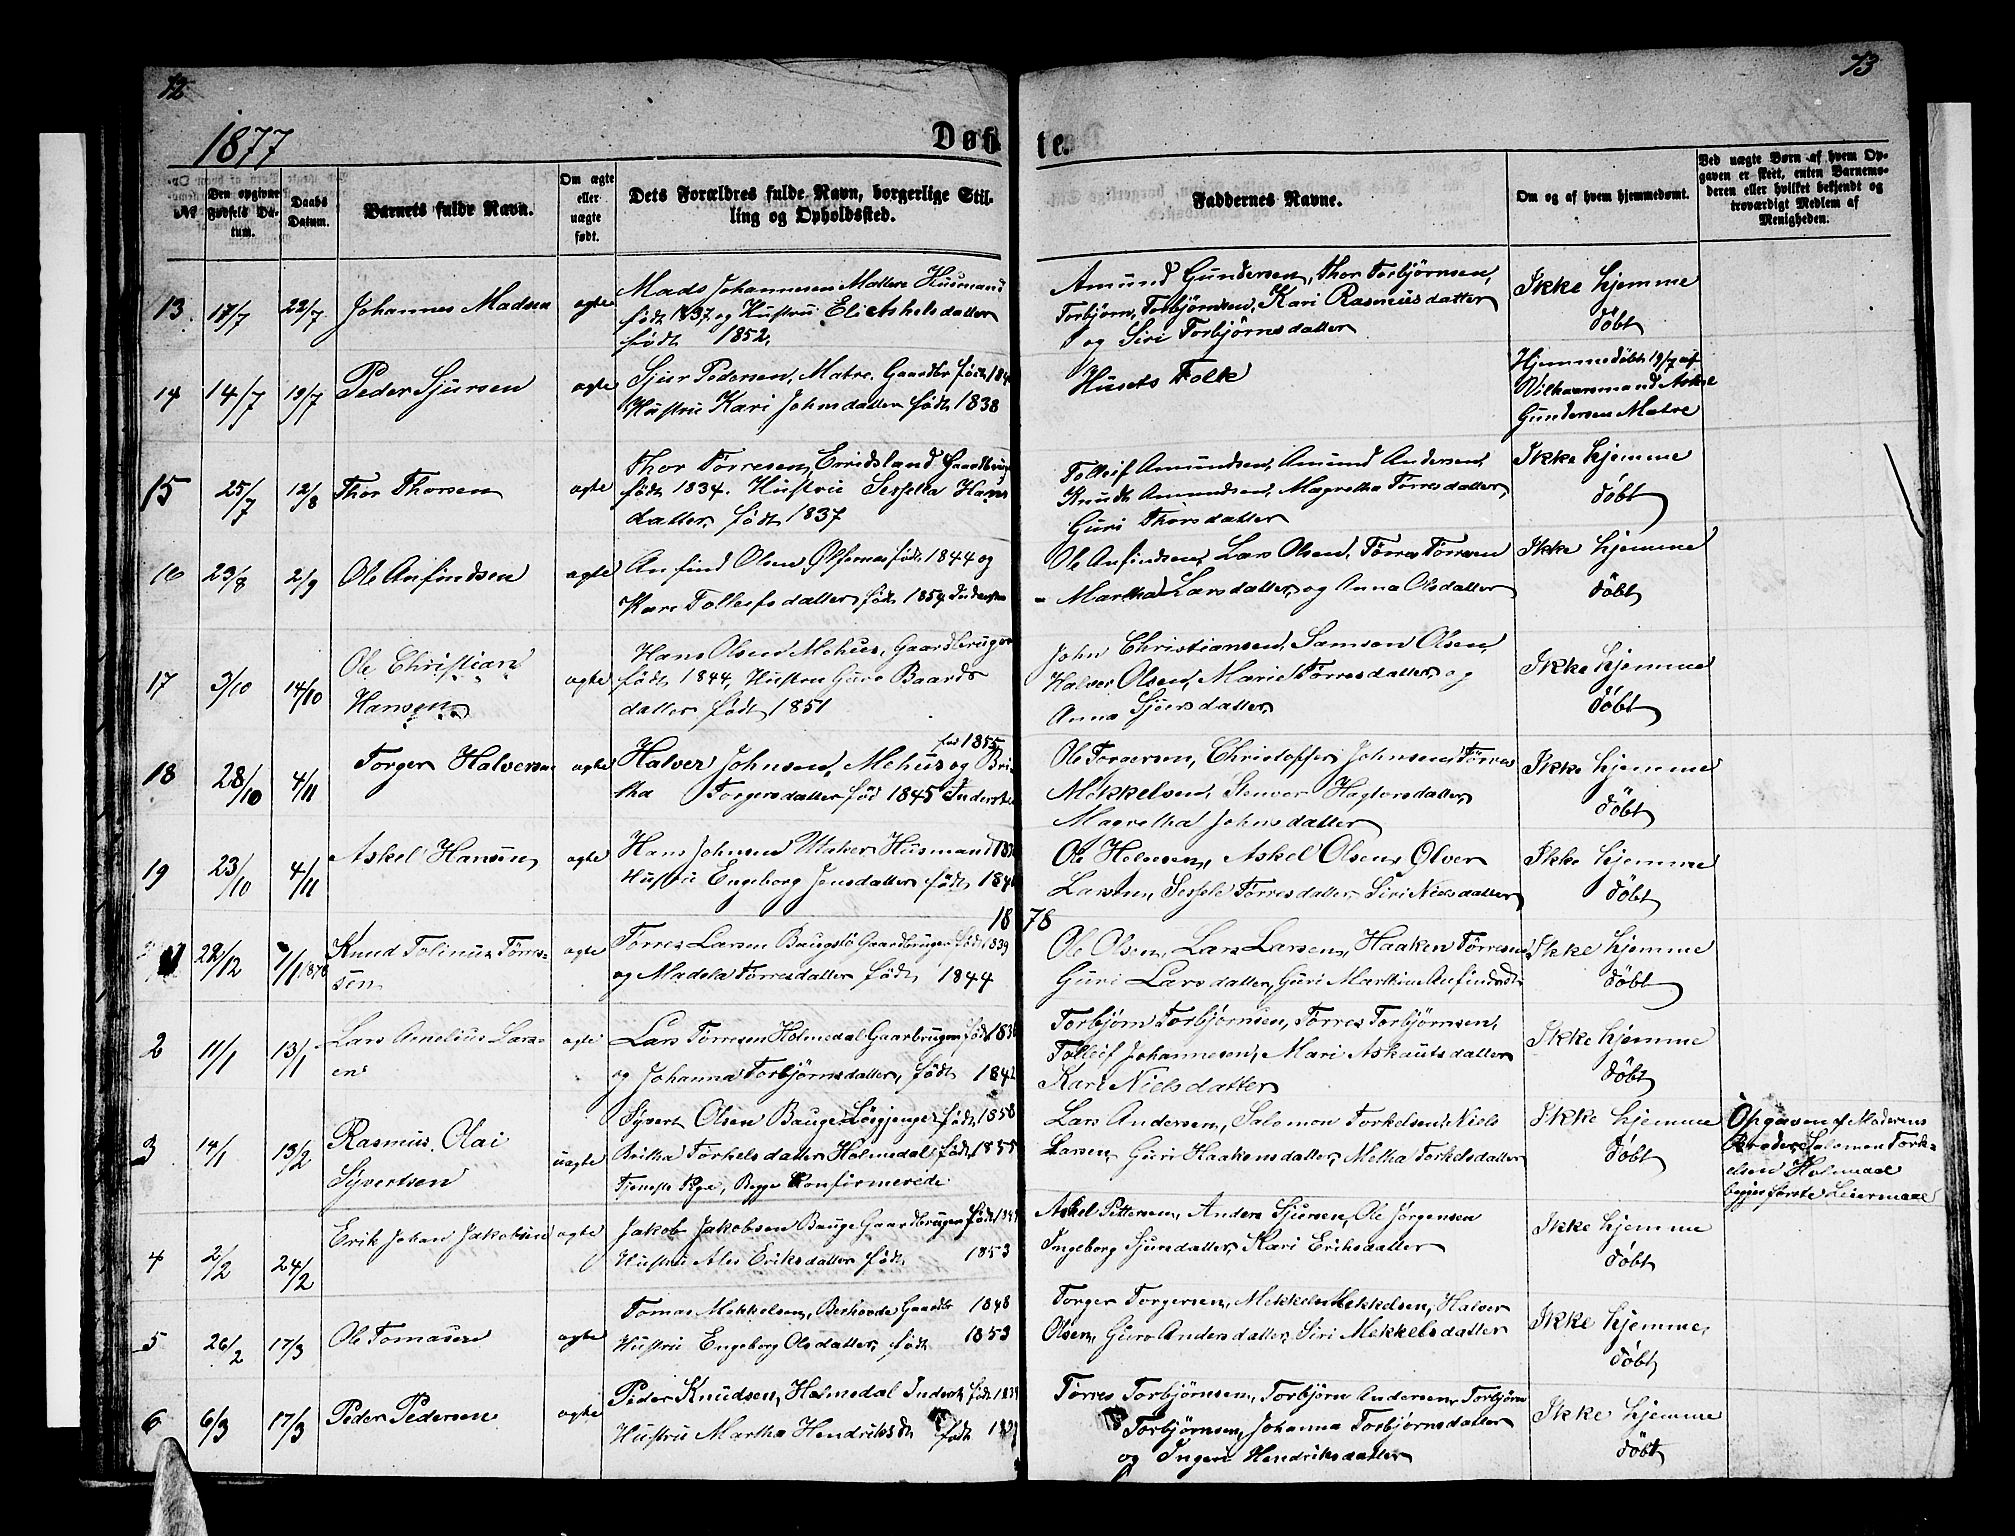 12
73
1877
Døb
te.
№
Den opgivne Fødsels Datum.
Daabs Datum.
Barnets fulde Navn.
Om ægte eller uægte født.
Dets Forældres fulde Navn, borgerlige Stilling og Opholdssted.
Faddernes Navne.
Om og af hvem hjemmedømt.
Ved uægte Børn af hvem Opgaven er skeet, enten Barnemoderen eller hvilket bekjendt og troværdigt Medlem af Menigheden.
13. 18/7 22/7 Johannes Madsen ægte
Mads Johannesen Matere Husmand
født 1837 og Hustru Eli Askelsdatter
født 1852,
Amund Gundersen, Thor Torbjørnsen,
Torbjørn, Torbjørnsen, Kari Rasmusdatter
og Siri Torbjørnsdatter
Ikke hjemme
døbt
14 14/7 19/7 Peder Sjursen ægte
Sjur Pedersen, Matre. Gaardbr født
Hustru Kari Johnsdatter født 1838
Husets Folk
Hjemmedøbt 19/7 af
Vilkaarsmand Askse
Gundersen Matre
15 25/7 12/8 Thor Thorsen ægte
Thor Tørresen, Erridsland Gaardbrug
født 1834. Hustru Sessella Hans
datter, født 1837
Tolleif Amundsen, Amund Andersen,
Knudt Amundsen, Magretha Tørresdatter,
Guri Thorsdatter
Ikke hjemme
døbt
16 23/8 2/9 Ole Anfindsen ægte
Anfind Olsen Ølfernes født 1844 og
Kari Tolleifsdatter født 1859 Inderste
Ole Anfindsen, Lars Olsen, Tørres Tørresen
- Martha Larsdatter, og Anna Olsdatter
Ikke hjemme
døbt
17 3/10 14/10 Ole Christian
Hansen ægte
Hans Olsen Mehus, Gaardbruger
født 1844, Hustru Guro Baards
datter født 1851
John Christiansen, Samson Olsen,
Halver Olsen, Mari Tørresdatter, og
Anna Sjursdatter,
Ikke hjemme
døbt
18 28/10 4/11 Torger Halversen ægte
fød 1855
Halver Johnsen, Mehus og Bri-
tha Torgersdatter fød 1845 Inderste
Ole Torgersen, Christoffer Johnsen, Tørres
Mekkelsen, Stenvor Hagtorsdatter,
Magretha Johnsdatter
Ikke hjemme
døbt
19 23/10 4/11 Askel Hansen, ægte
Hans Johnsen Utaker Husmand
Hustru Engeborg Jensdatter født
Ole Helnesen, Askel Olsen, Ølver
Larsen, Sessele Tørresdatter, Siri Nielsdatter
Ikke hjemme
døbt
18 78
1 22/12 1/1 1878 Knud Tolinus Tørres-
sen ægte
Tørres Larsen Baugstø Gaardbruger født 1839
og Madela Tørresdatter født 1844
Ole Olsen, Lars Larsen, Haaken Tørresen
Guri Larsdatter, Guri Marthine Anfindsdt
Ikke hjemme
døbt
2 11/1 13/1 Lars Arnelius Lars-
en ægte
Lars Tørresen Holmedal Gaarbruger født
og Johanna Torbjørnsdatter, født 1842
Torbjørn Torbjørnsen, Tørres Torbjørnsen,
Tolleif Johannesen, Mari Askautsdatter
Kari Nielsdatter
Ikke hjemme
døbt
3 14/1 13/2 Rasmus Olai
Syvertsen uægte
Syvert Olsen Bauge Løsgjenger født 1858
Britha Torkelsdatter Holmedal født 1855
Tjeneste Pige, Begge Konfirmerede
Lars Andersen, Salomon Torkelsen, Niels
Larsen, Guri Haakensdatter, Metha Torkelsdatter
Ikke hjemme
døbt
Opgaven af Moderens
Broder, Salomon Tork-
elsen Holmedal
begges første Leiermaal
4 2/2 24/2 Erik Johan Jakobsen ægte
Jakob Jakobsen Bauge Gaardbruger født
Hustru Ales Eriksdatter født 1853
Askel Pettersen, Anders Sjursen, Ole Jørgensen
Ingeborg Sjursdatter, Kari Eriksdatter
Ikke hjemme
døbt
5 26/2 17/3 Ole Tomasen ægte
Tomas Mekkelsen, Berhovde Gaardbr 1848
Hustru Engeborg Olsdatter, født 1853
Torger Torgersen, Mekkel Mekkelsen, Halver
Olsen, Guro Andersdatter, Siri Mekkelsdatter
Ikke hjemme,
døbt
6 6/3 17/3 Peder Pedersen ægte
Peder Knudsen, Holmedal Inderst født
Hustru Martha Hendriksdt født
Tørres Torbjørnsen, Torbjørn Andersen, Torbjørn
Torbjørnsen, Johanna Torbjørnsdatter
og Ingeri Hendriksdatter
Ikke hjemme
døbt